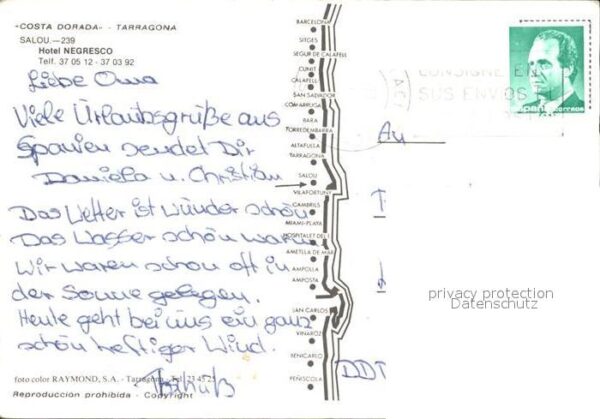 «COSTA DORADA» - TARRAGONA
SALOU.—239
Hotel NEGRESCO
Telf. 37 05 12 - 37 03 92
Liebe Oma
Viele Urlaubsgrüße aus
Spanien sendet Dir
Daniela u. Christian
Das Wetter ist wunder schön
Das Wasser schön warm
Wir waren schon oft in
der Sonne gelegen.
Heute geht bei uns ein ganz
schön heftiger Wind.
Tschüß
foto color RAYMOND, S.A. - Tarragona - Tel. 23 45 25
Reproducción prohibida - Copyright
BARCELONA
SITGES
SEGUR DE CALAFELL
CUNIT
CALAFELL
SAN SALVADOR
COMARRUGA
BARA
TORREDEMBARRA
ALTAFULLA
TARRAGONA
SALOU
VILAFORTUNY
CAMBRILS
MIAMI-PLAYA
HOSPITALET DEL I.
AMETLLA DE MAR
AMPOLLA
AMPOSTA
SAN CARLOS
VINAROZ
BENICARLO
PEÑISCOLA
CONSIGNE EN
SUS ENVIOS
España correos
An
DDR
privacy protection
Datenschutz